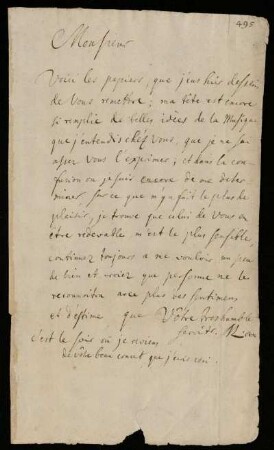 495
Monsieur
Voici les papiers, que j'eus hier dessein
de vous remettre; ma tête est encore
si remplie de belles idées de la Musique
que j'entendis chés vous, que je ne sai
assez vous l'exprimer; et dans la con-
fusion ou je suis encore de me deter-
miner sur ce que m'y fait le plus de
plaisir, je trouve que celui de Vous en
être redevable m'est le plus sensible
continuez toujours a me vouloir un peu
de bien et croiez que personne ne le
reconnoitra avec plus des sentimens
et d'estime que Vôtre treshumble
servitr.
c'est le soir où je reviens
de vôtre bon que j'ai